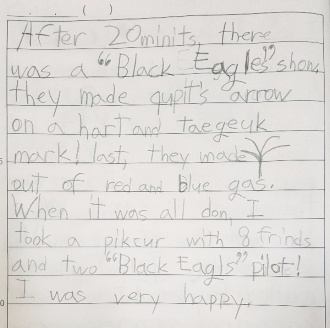 ( )
After 20minits, there
was a "Black Eagles" show,
they made qupit's arrow
on a hart and taegeuk
mark! last, they made
out of red and blue gas.
When it was all don, I
took a pikcur with 8 frinds
and two "Black Eagls" pilot!
I was very happy.